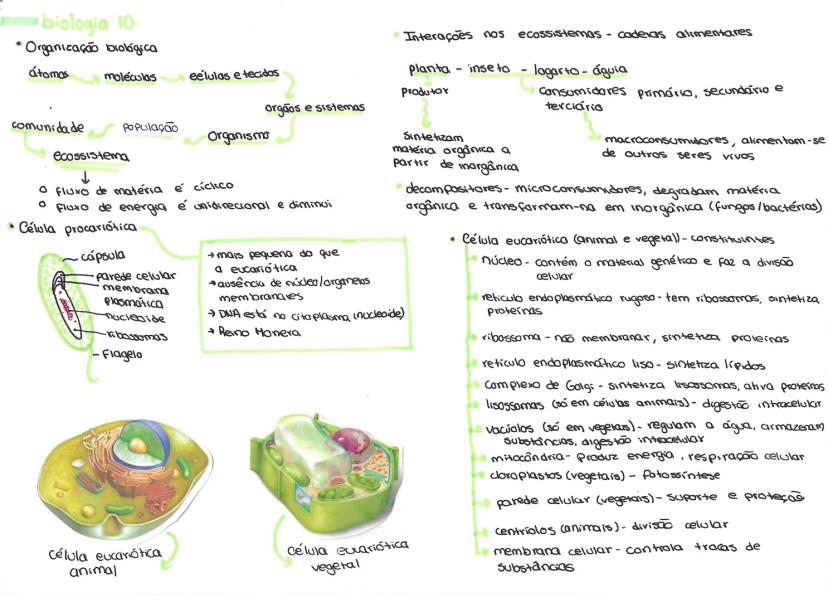 biologia 10
• Organização biológica
átomos → moléculas → células e tecidos
orgãos e sistemas
Organismo
População
comunidade
ecossistema
o fluxo de matéria é cíclico
o fluxo de energia é unidirecional e diminui
• Célula procariótica
cápsula
parede celular
membrana
plasmática
nucleoide
ribossomas
flagelo
→ mais pequena do que
a eucariótica
→ ausência de núcleo/organelos
membranares
→ DNA está no citoplasma (nucleoide)
→ Reino Monera
célula eucariótica
animal
célula eucariótica
vegetal
• Interações nos ecossistemas - cadeias alimentares
planta - inseto - lagarto - águia
Produtor
consumidores primário, secundário e
terciário
sintetizam
matéria orgânica a
partir de inorgânica
macroconsumidores, alimentam-se
de outros seres vivos
• decompositores - microconsumidores, degradam matéria
orgânica e transformam-na em inorgânica (fungos/bactérias)
• Célula eucariótica (animal e vegetal) - constituintes
núcleo - contém o material genético e faz a divisão
celular
retículo endoplasmático rugoso - tem ribossomas, sintetiza
proteínas
ribossoma - não membranar, sintetiza proteínas
retículo endoplasmático liso - sintetiza lípidos
complexo de Golgi - sintetiza lisossomas, ativa proteínas
lisossomas (só em células animais) - digestão intracelular
vacúolos (só em vegetais) - regulam a água, armazenam
substâncias, digestão intracelular
mitocôndria - produz energia, respiração celular
cloroplastos (vegetais) - fotossíntese
parede celular (vegetais) - suporte e proteção
centríolos (animais) - divisão celular
membrana celular - controla trocas de
substâncias